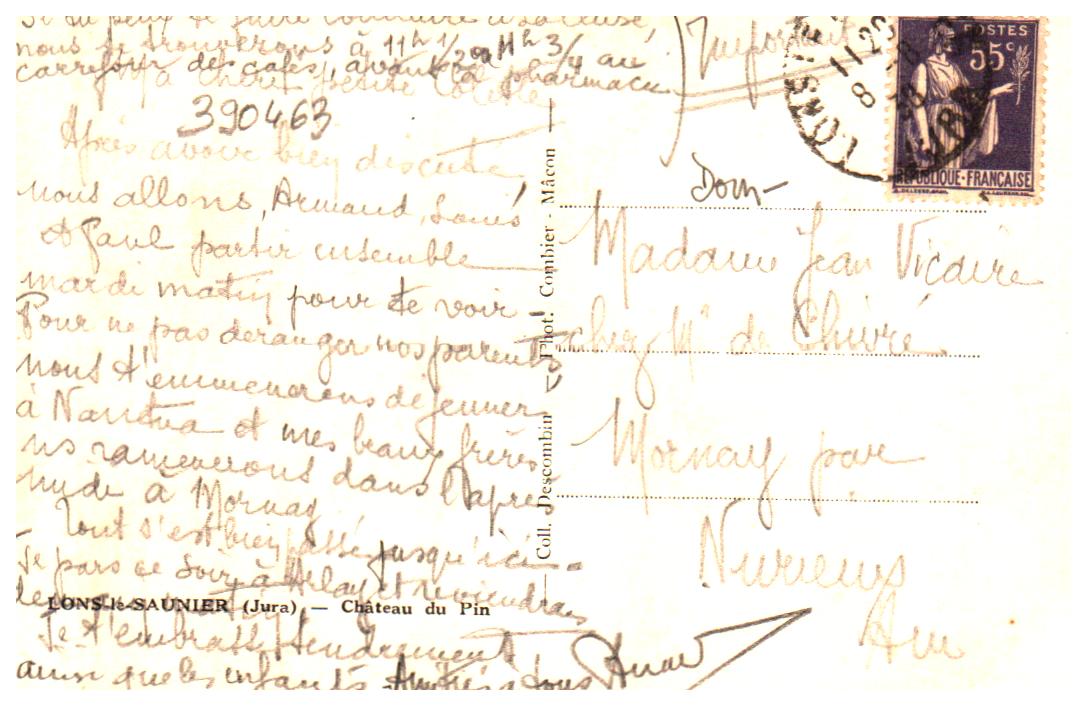 Si tu peux te faire conduire à
nous te trouverons à 11h 1/2 ou 11h 3/4 au
carrefour des cafés, avant la pharmacie
Ma chère petite Colette
390463
Après avoir bien discuté
nous allons, Armand, Louis
et Paul partir ensemble
mardi matin pour te voir
Pour ne pas déranger nos parents
nous t'emmenerons déjeuner
à Nantua et mes beaux frères
ns ramèneront dans l'après
midi à Mornay
Tout s'est bien passé jusqu'ici
Je pars ce soir à Arlay et reviendrai
LONS-le-SAUNIER (Jura) — Château du Pin
Je t'embrasse tendrement
ainsi que les enfants. Amitiés à tous
Coll. Descombin — Phot. Combier - Mâcon
Important
POSTES
55c
RÉPUBLIQUE FRANÇAISE
Dom-
Madame Jean Vicaire
chez Mr de Chivré
Mornay par
Nurieux
Ain